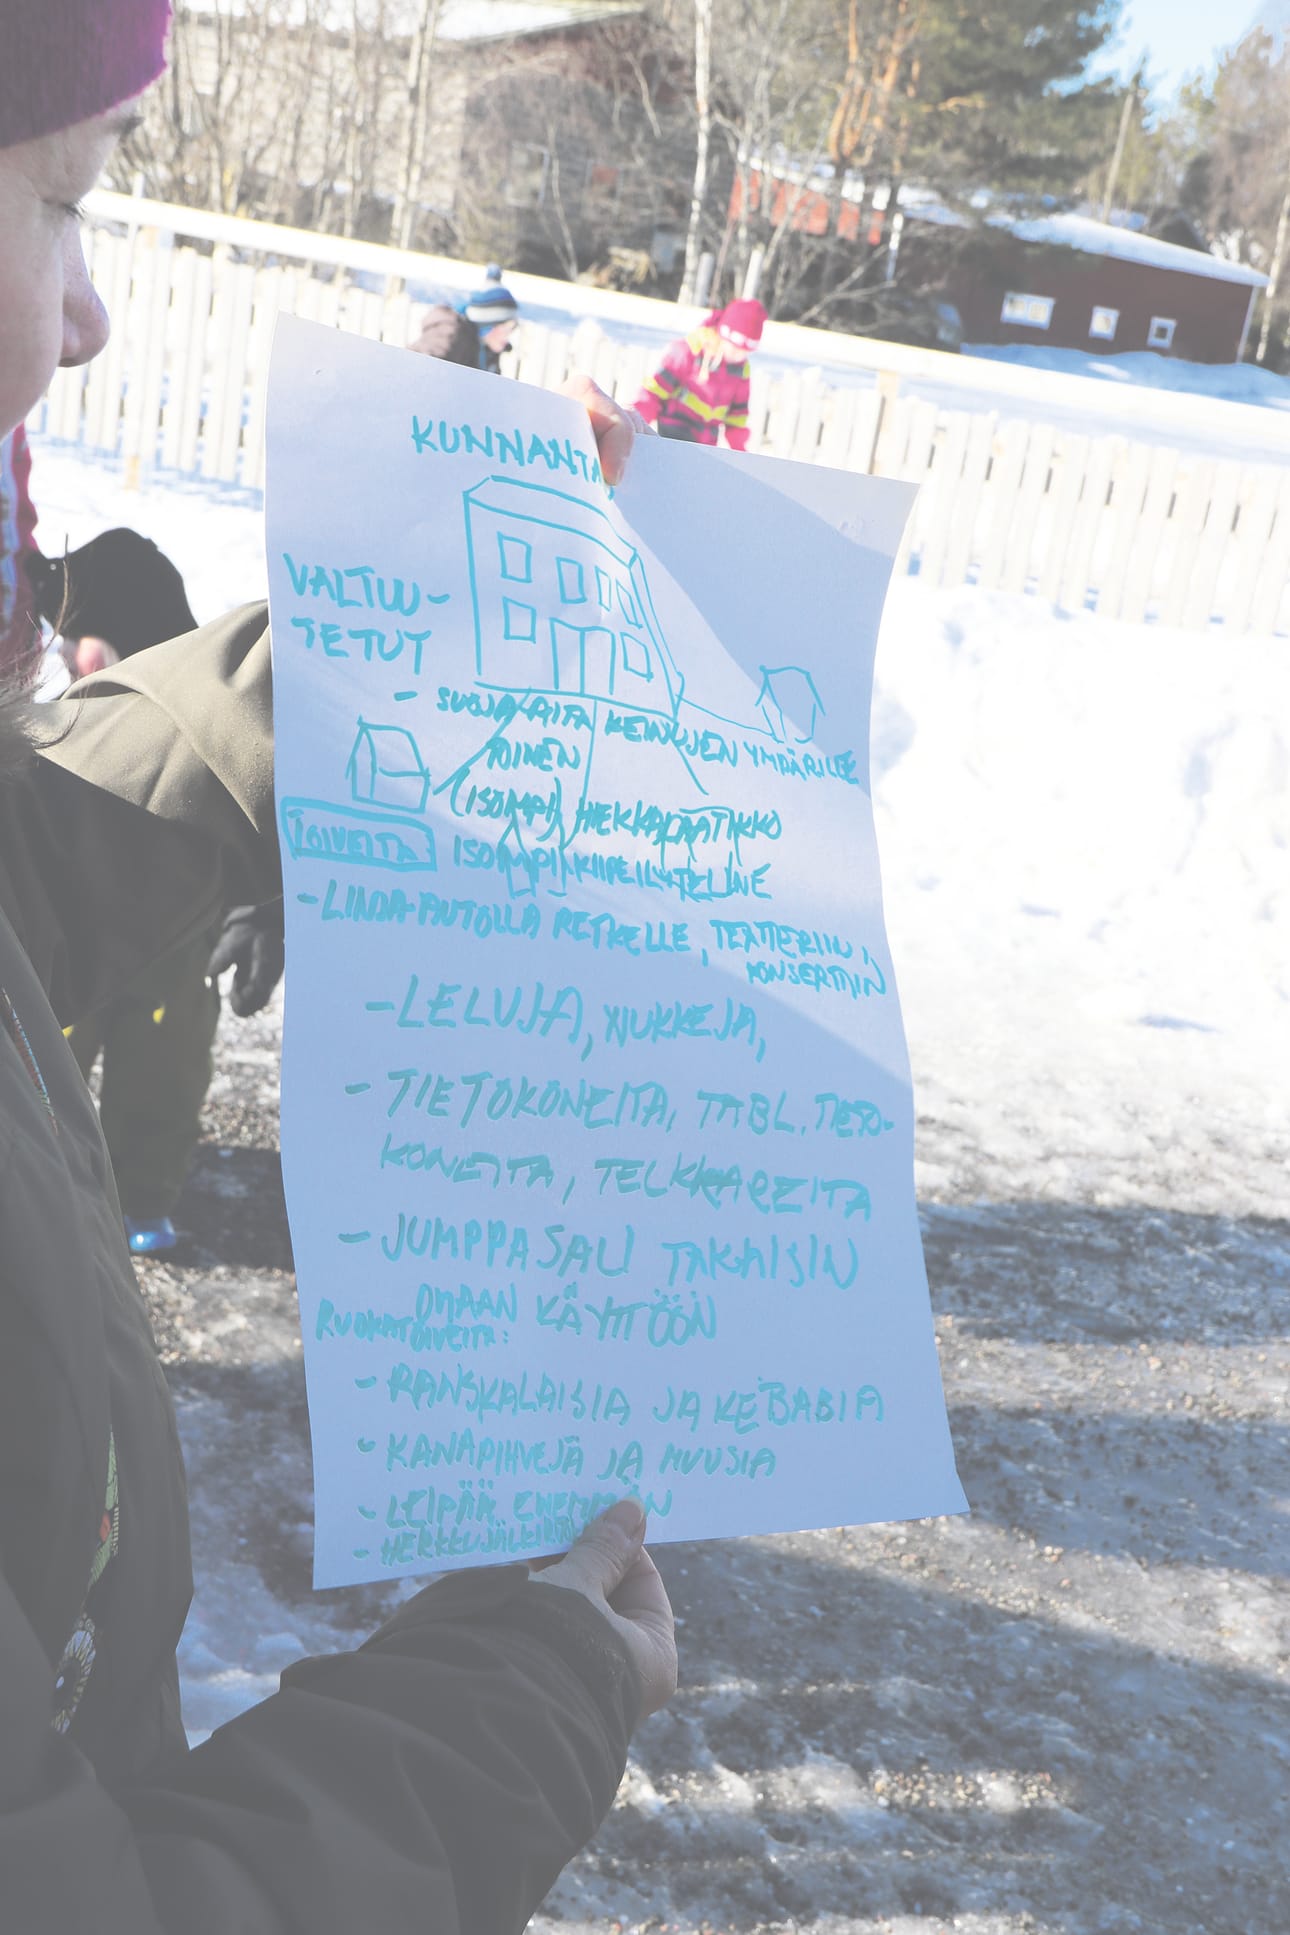 KUNNANTA
VALTUU-
TETUT
- SUOJA-AITA KEINUJEN YMPÄRILLE
TOINEN
(ISOMPI) HIEKKALAATIKKO
TOIVEITA
ISOMPI KIIPEILYTELINE
- LINJA-AUTOLLA RETKELLE, TEATTERIIN,
KONSERTTIIN
- LELUJA, NUKKEJA,
- TIETOKONEITA, TABL. TIETO-
KONEITA, TELKKAREITA
- JUMPPASALI TAKAISIN
OMAAN KÄYTTÖÖN
RUOKATOIVEITA:
- RANSKALAISIA JA KEBABIA
- KANAPIHVEJÄ JA MUUSIA
- LEIPÄÄ ENEMMÄN